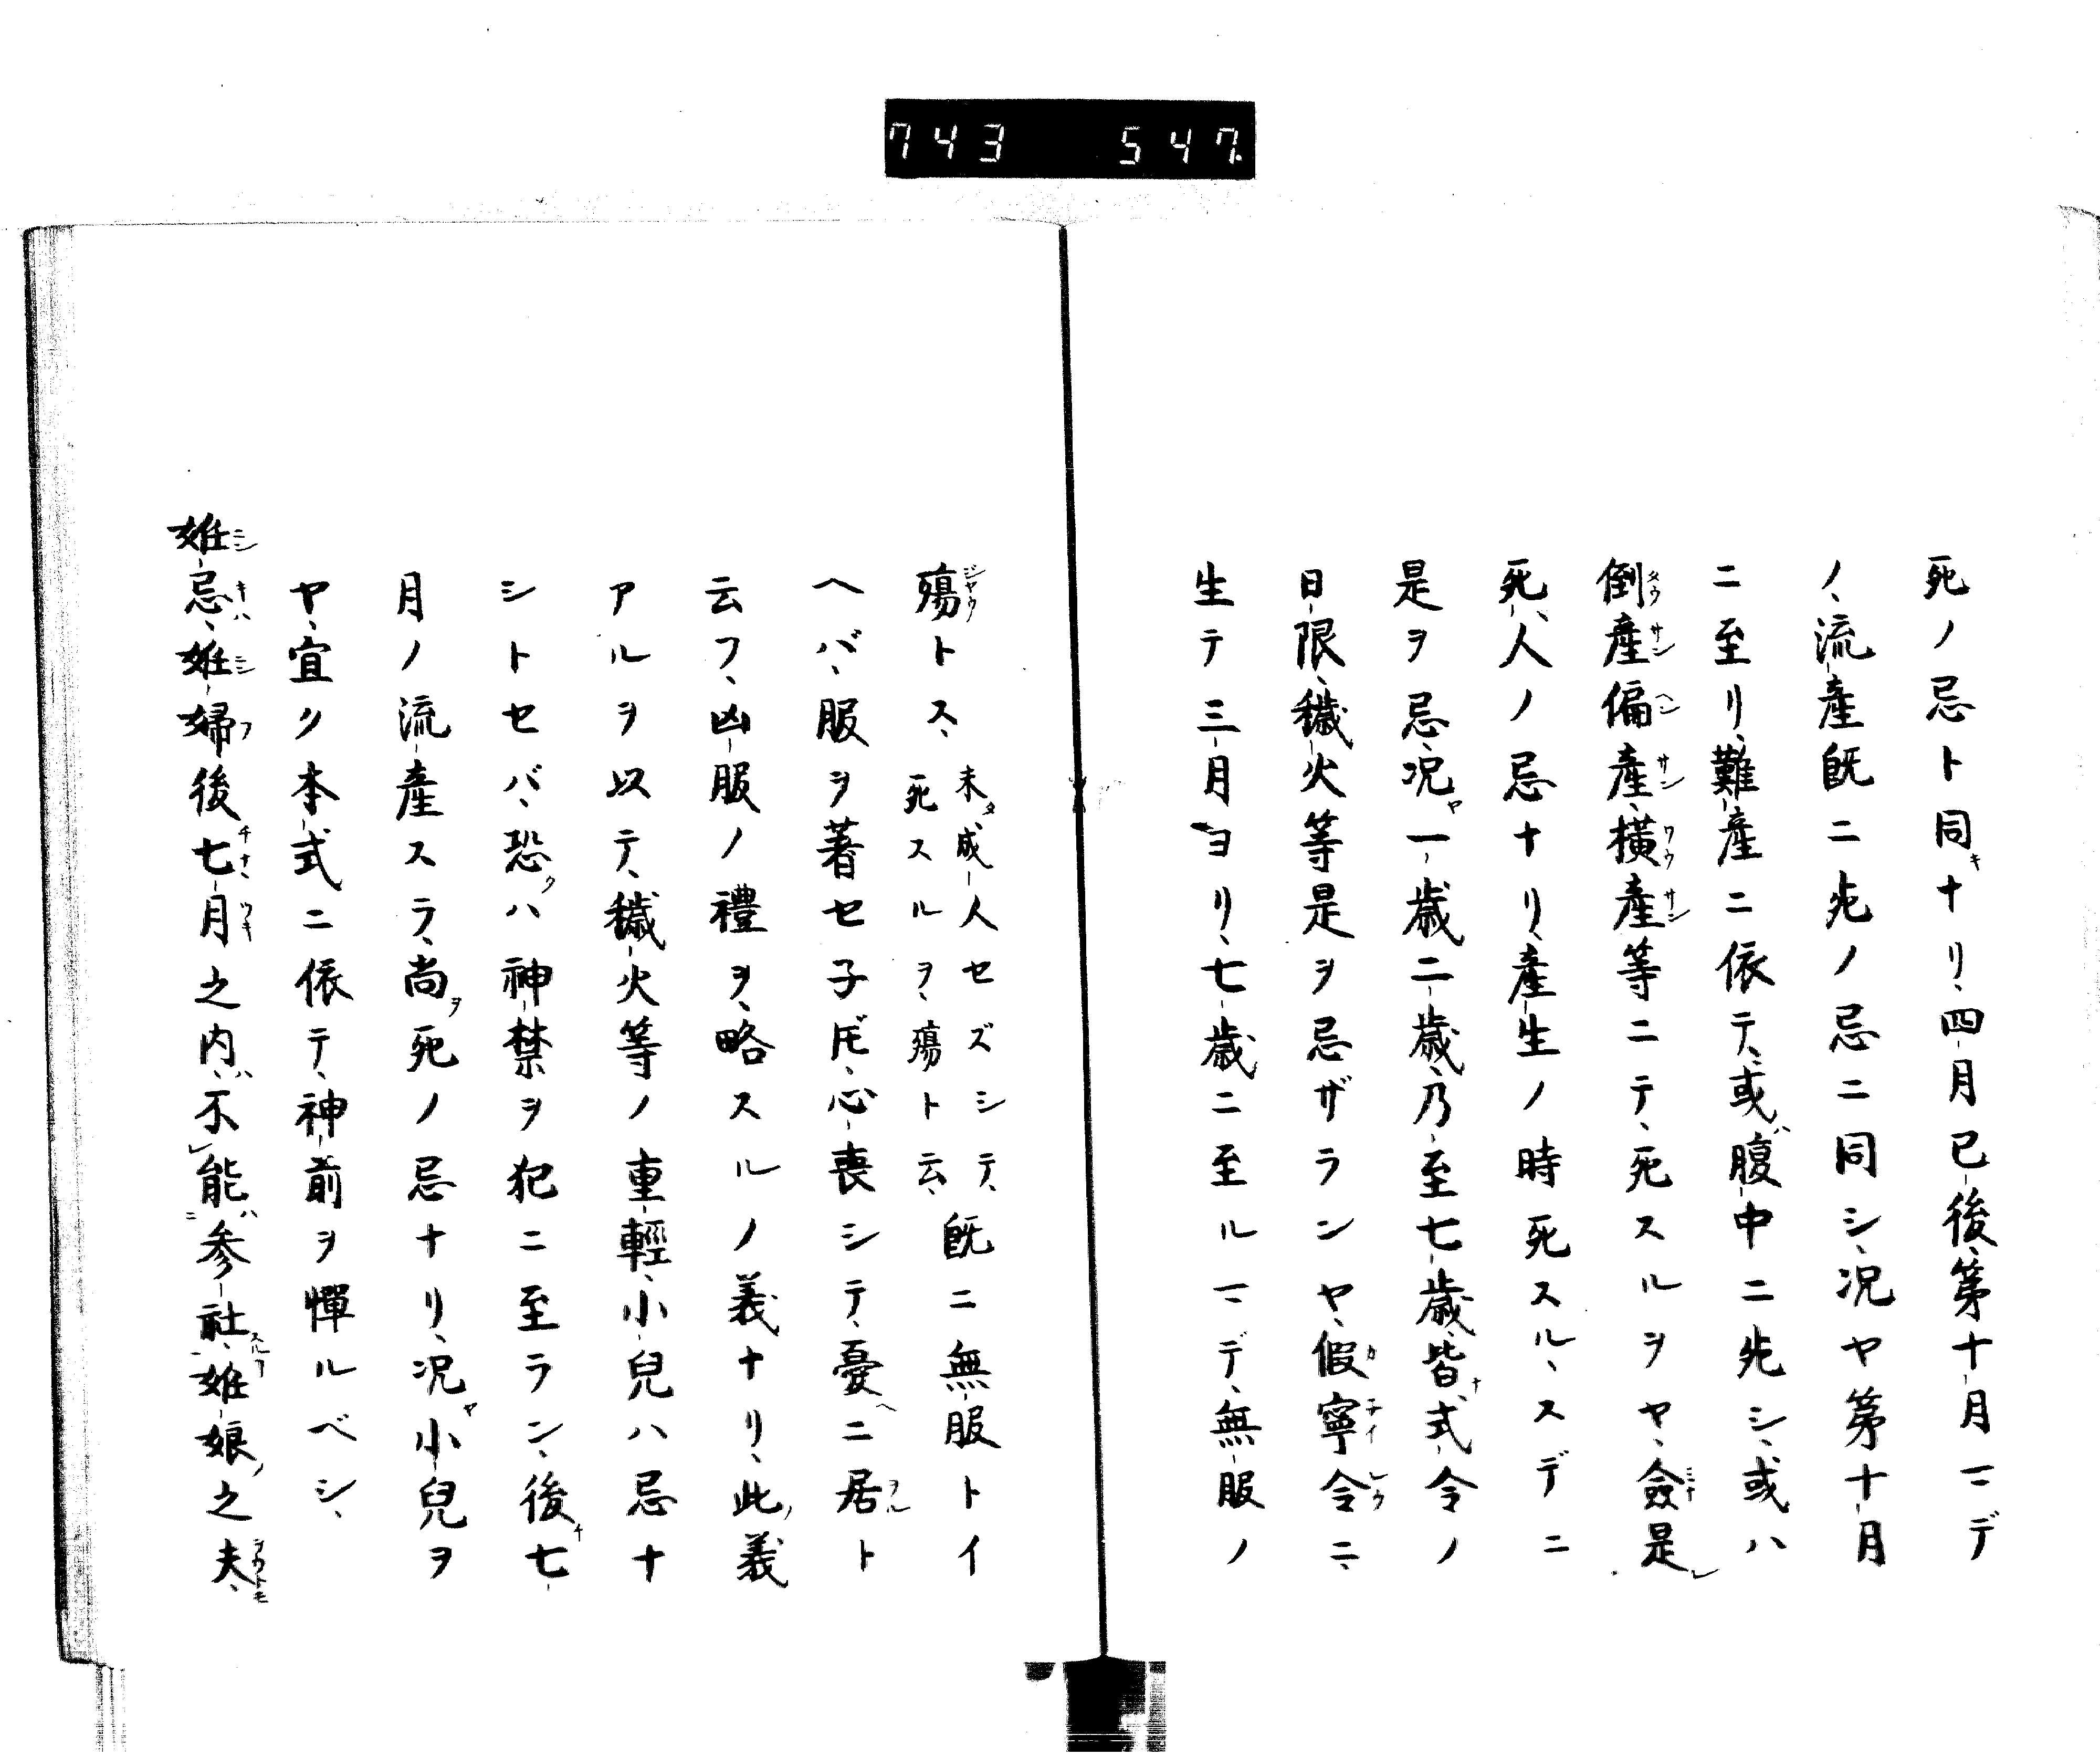 743 547
死ノ忌ト同ナリ、四月已後、第十月マデ
ノ、流産既ニ死ノ忌ニ同シ、況ヤ第十月
ニ至リ、難産ニ依テ、或ハ腹中ニ死シ、或ハ
倒産偏産、横産等ニテ、死スルヲヤ、僉是
死人ノ忌ナリ、産生ノ時死スル、スデニ
是ヲ忌、況一歳二歳、乃至七歳、皆式令ノ
日限、穢火等是ヲ忌ザランヤ、假寧令ニ、
生テ三月ヨリ、七歳ニ至ルマデ、無服ノ
殤トス、未成人セズシテ、死スルヲ、殤ト云、既ニ無服トイ
ヘバ、服ヲ著セ子𪜈、心喪シテ、憂ニ居ト
云フ、凶服ノ禮ヲ、略スルノ義ナリ、此義
アルヲ以テ、穢火等ノ重輕、小兒ハ忌ナ
シトセバ、恐ハ神禁ヲ犯ニ至ラン、後七
月ノ流産スラ、尚死ノ忌ナリ、況小兒ヲ
ヤ、宜ク本式ニ依テ、神前ヲ憚ルベシ、
姙忌、姙婦後七月之内、不能參社、姙娘之夫、